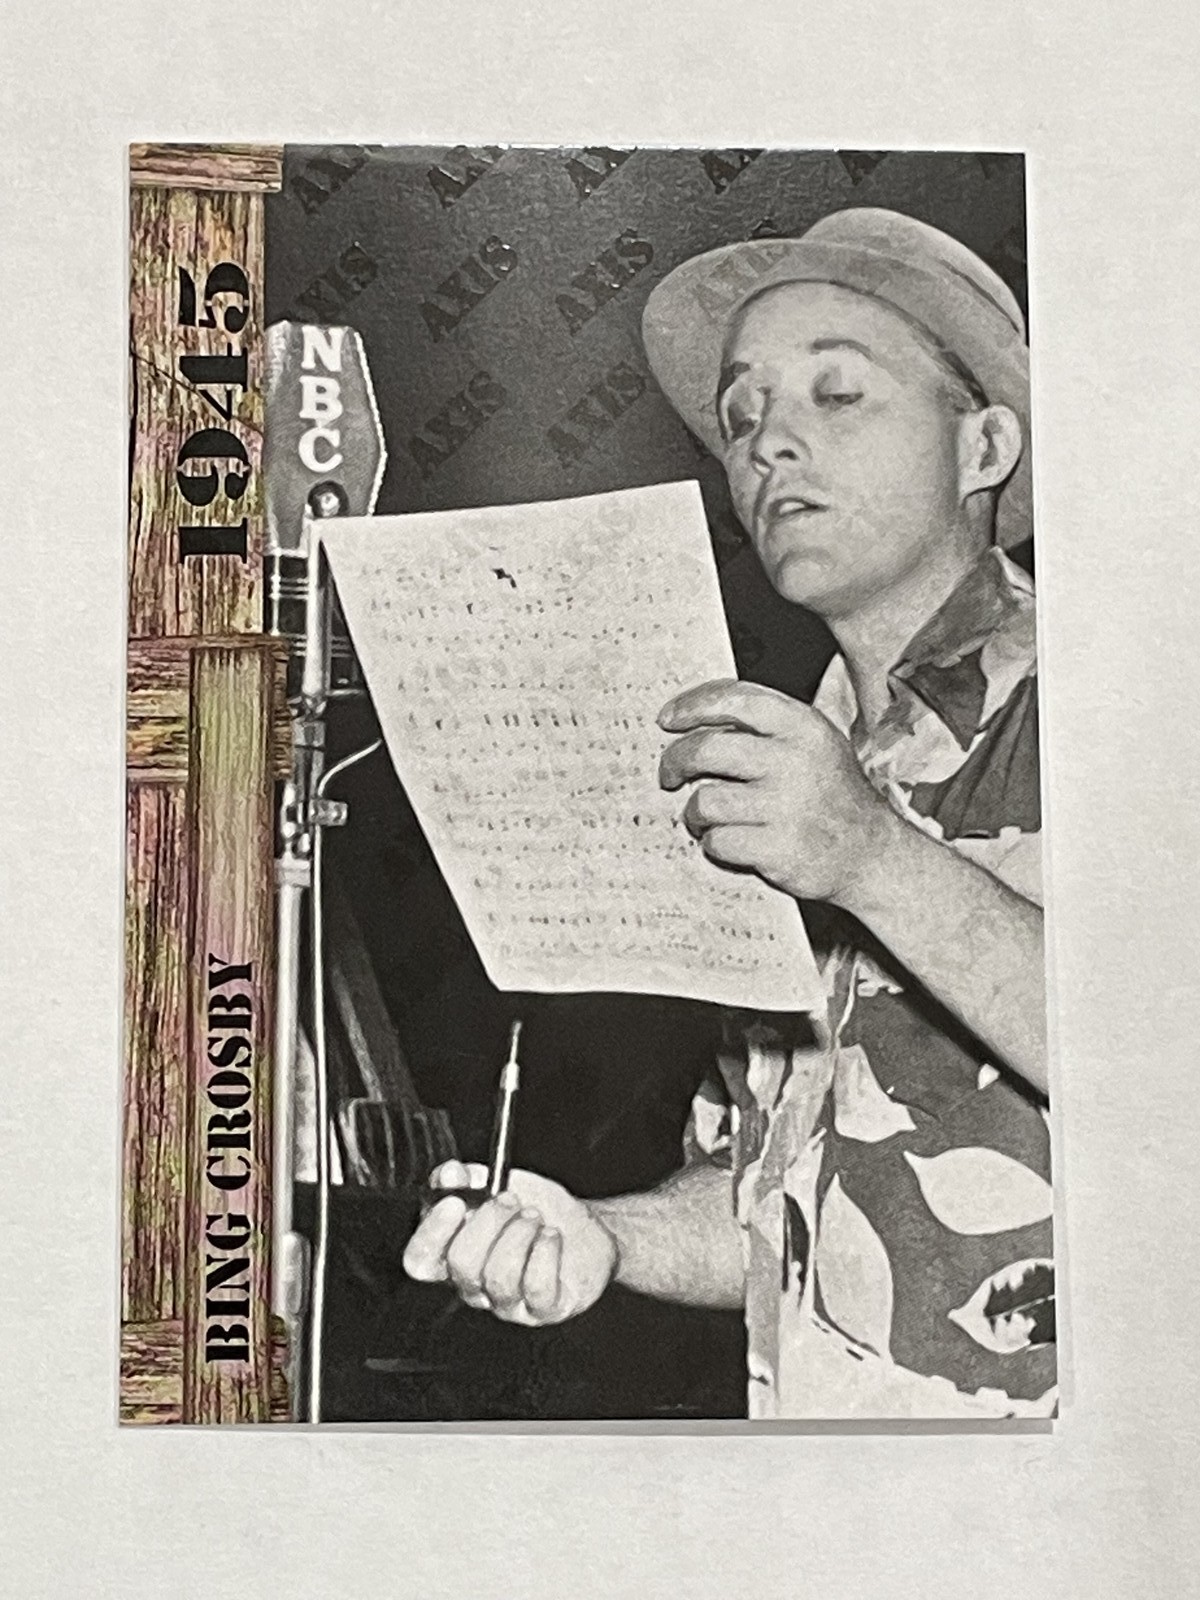 AXIS AXIS AXIS AXIS AXIS
AXIS AXIS AXIS AXIS
AXIS AXIS
1945
N
B
C
BING CROSBY